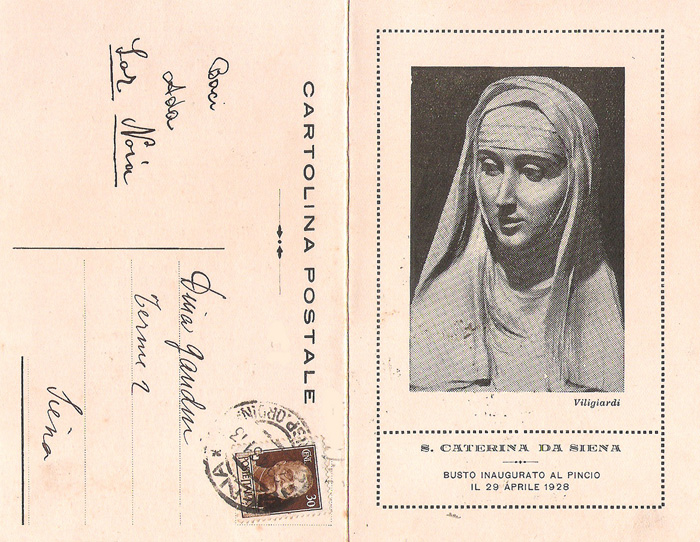 CARTOLINA POSTALE
Baci
Ada
Sor Noia
Dina Gandin
Terme 2
Siena
ESP. ORDIN
30
Viligiardi
S. CATERINA DA SIENA
BUSTO INAUGURATO AL PINCIO
IL 29 APRILE 1928